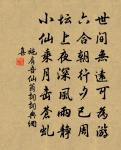 世間無遠可為游
六合朝行夕已周
壇上夜深風雨靜
小仙乘月擊蒼虬
施肩吾仙翁詞詞典網